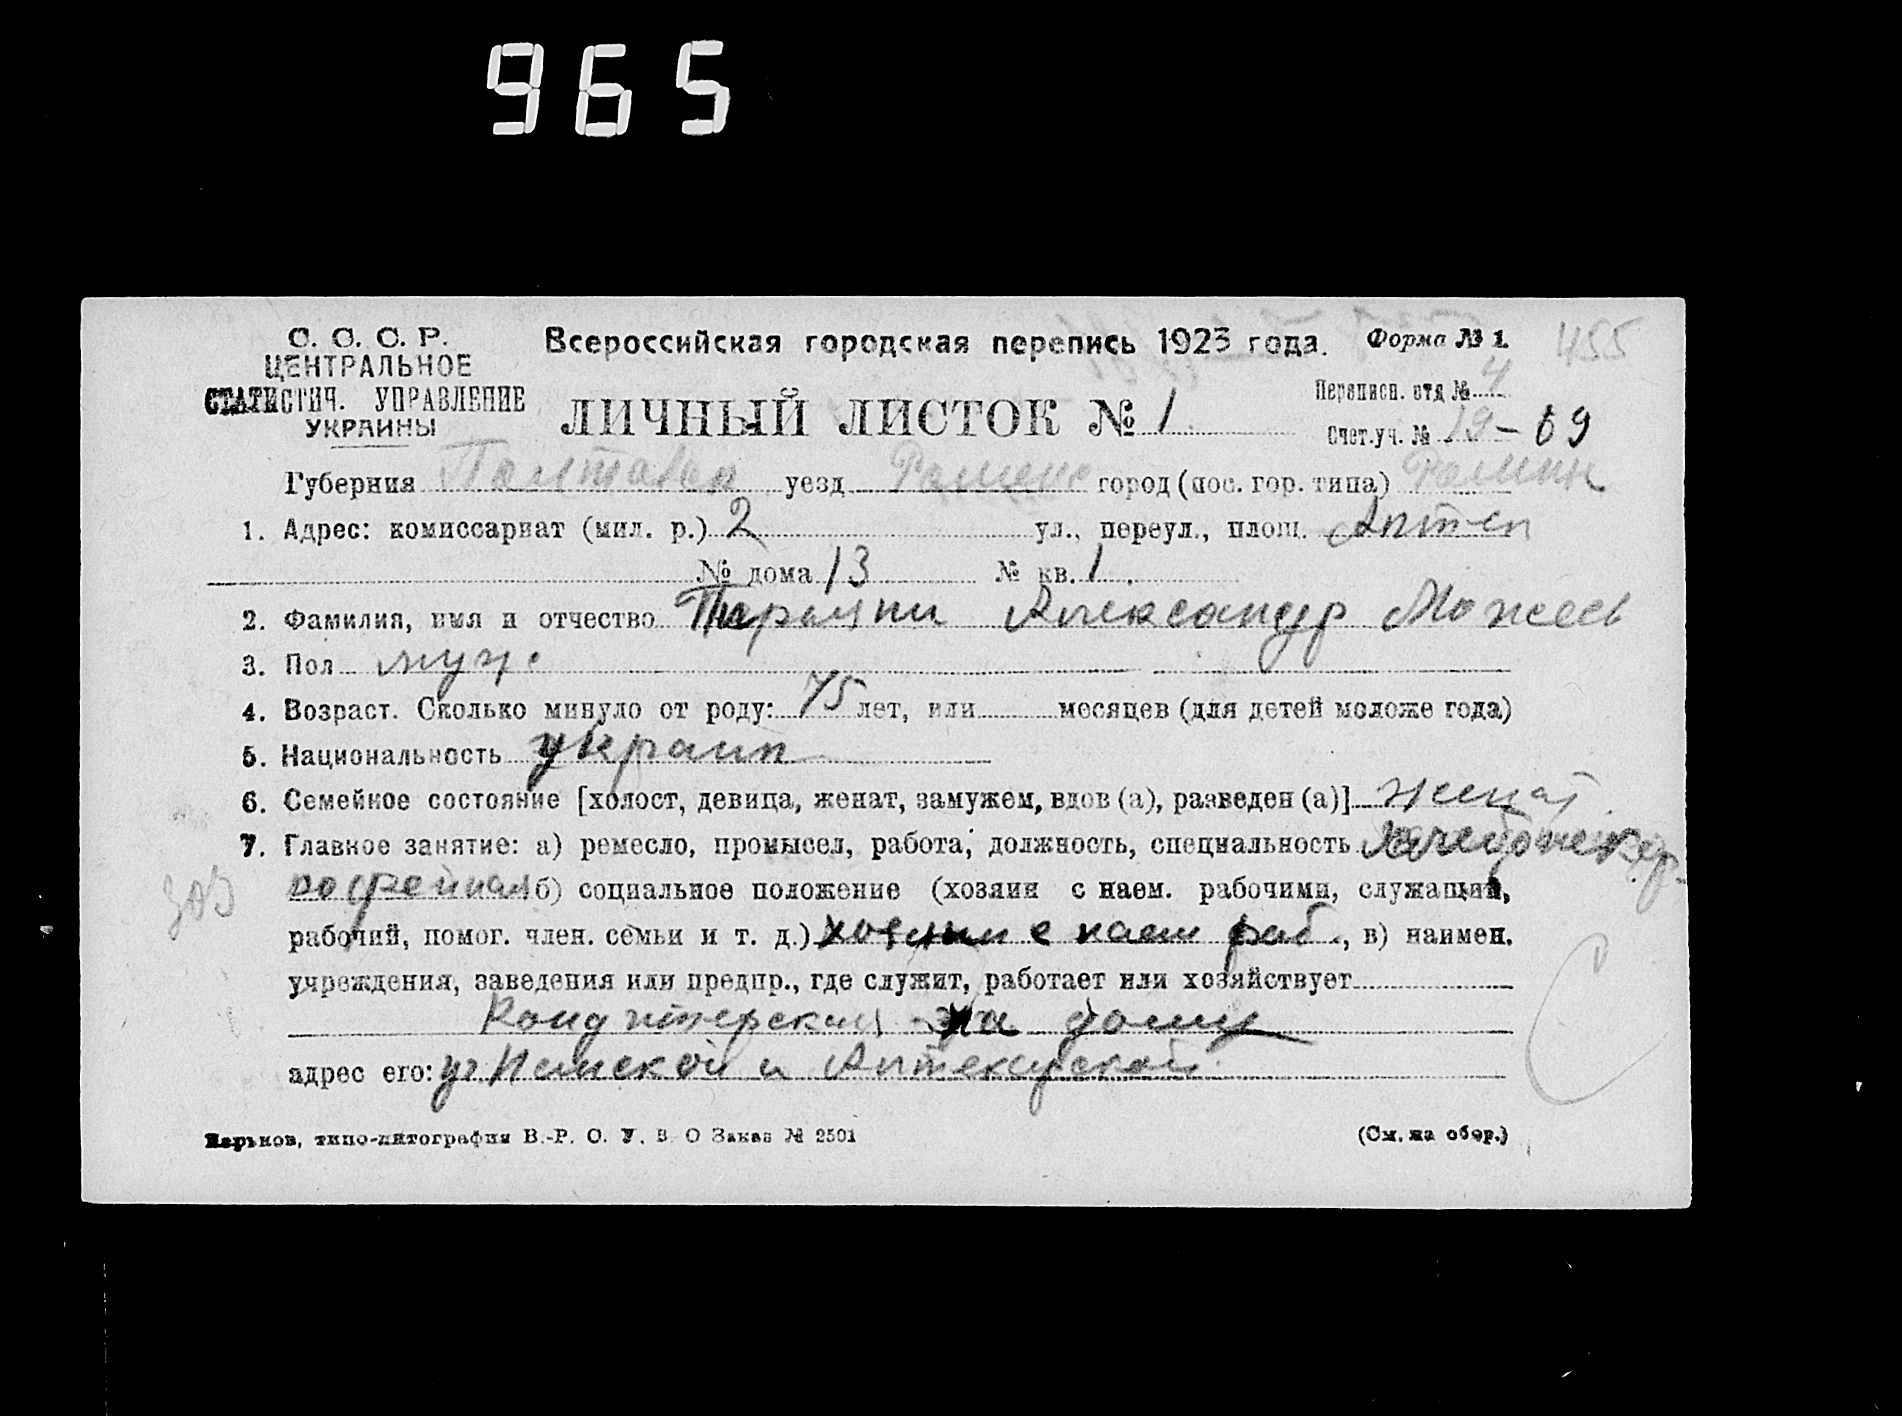 965
С. С. С. Р.
ЦЕНТРАЛЬНОЕ
СТАТИСТИЧ. УПРАВЛЕНИЕ
УКРАИНЫ
Всероссийская городская перепись 1923 года.
Форма № 1.
455
ЛИЧНЫЙ ЛИСТОК № 1
Переписн. отд № 4
Счет.уч. № 19-69
Губерния Полтавск уезд Роменс город (пос. гор. типа) Ромны
1. Адрес: комиссариат (мил. р.) 2 ул., переул., площ. Аптек
№ дома 13 № кв. 1.
2. Фамилия, имя и отчество Александр
3. Пол муж.
4. Возраст. Сколько минуло от роду: 75 лет, или месяцев (для детей моложе года)
5. Национальность украин
6. Семейное состояние [холост, девица, женат, замужем, вдов (а), разведен (а)] женат
7. Главное занятие: а) ремесло, промысел, работа, должность, специальность
б) социальное положение (хозяин с наем. рабочими, служащий,
рабочий, помог. член. семьи и т. д.) хозяин с наем раб., в) наимен.
учреждения, заведения или предпр., где служит, работает или хозяйствует
Кондитерская на дому
адрес его: и Аптекарской
Харьков, типо-литография В.-Р. О. У. В. О Заказ № 2501
(См. на обор.)